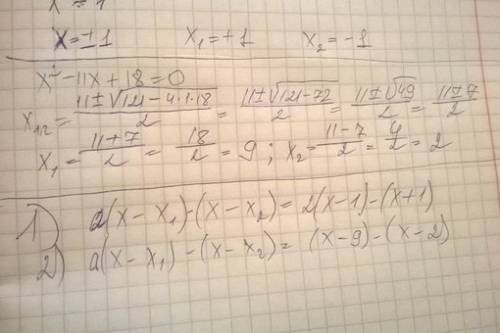 x = 1
x = ±1   x₁ = +1   x₂ = -1
x² - 11x + 18 = 0
x₁/₂ = (11 ± √(121 - 4·1·18))/2 = (11 ± √(121 - 72))/2 = (11 ± √49)/2 = (11 ± 7)/2
x₁ = (11 + 7)/2 = 18/2 = 9 ; x₂ = (11 - 7)/2 = 4/2 = 2
1) a(x - x₁) - (x - x₂) = 2(x - 1) - (x + 1)
2) a(x - x₁) - (x - x₂) = (x - 9) - (x - 2)